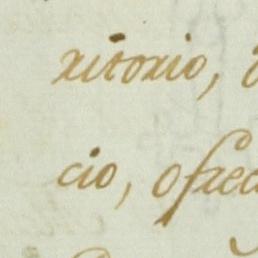 ritorio,
cio, ofrec